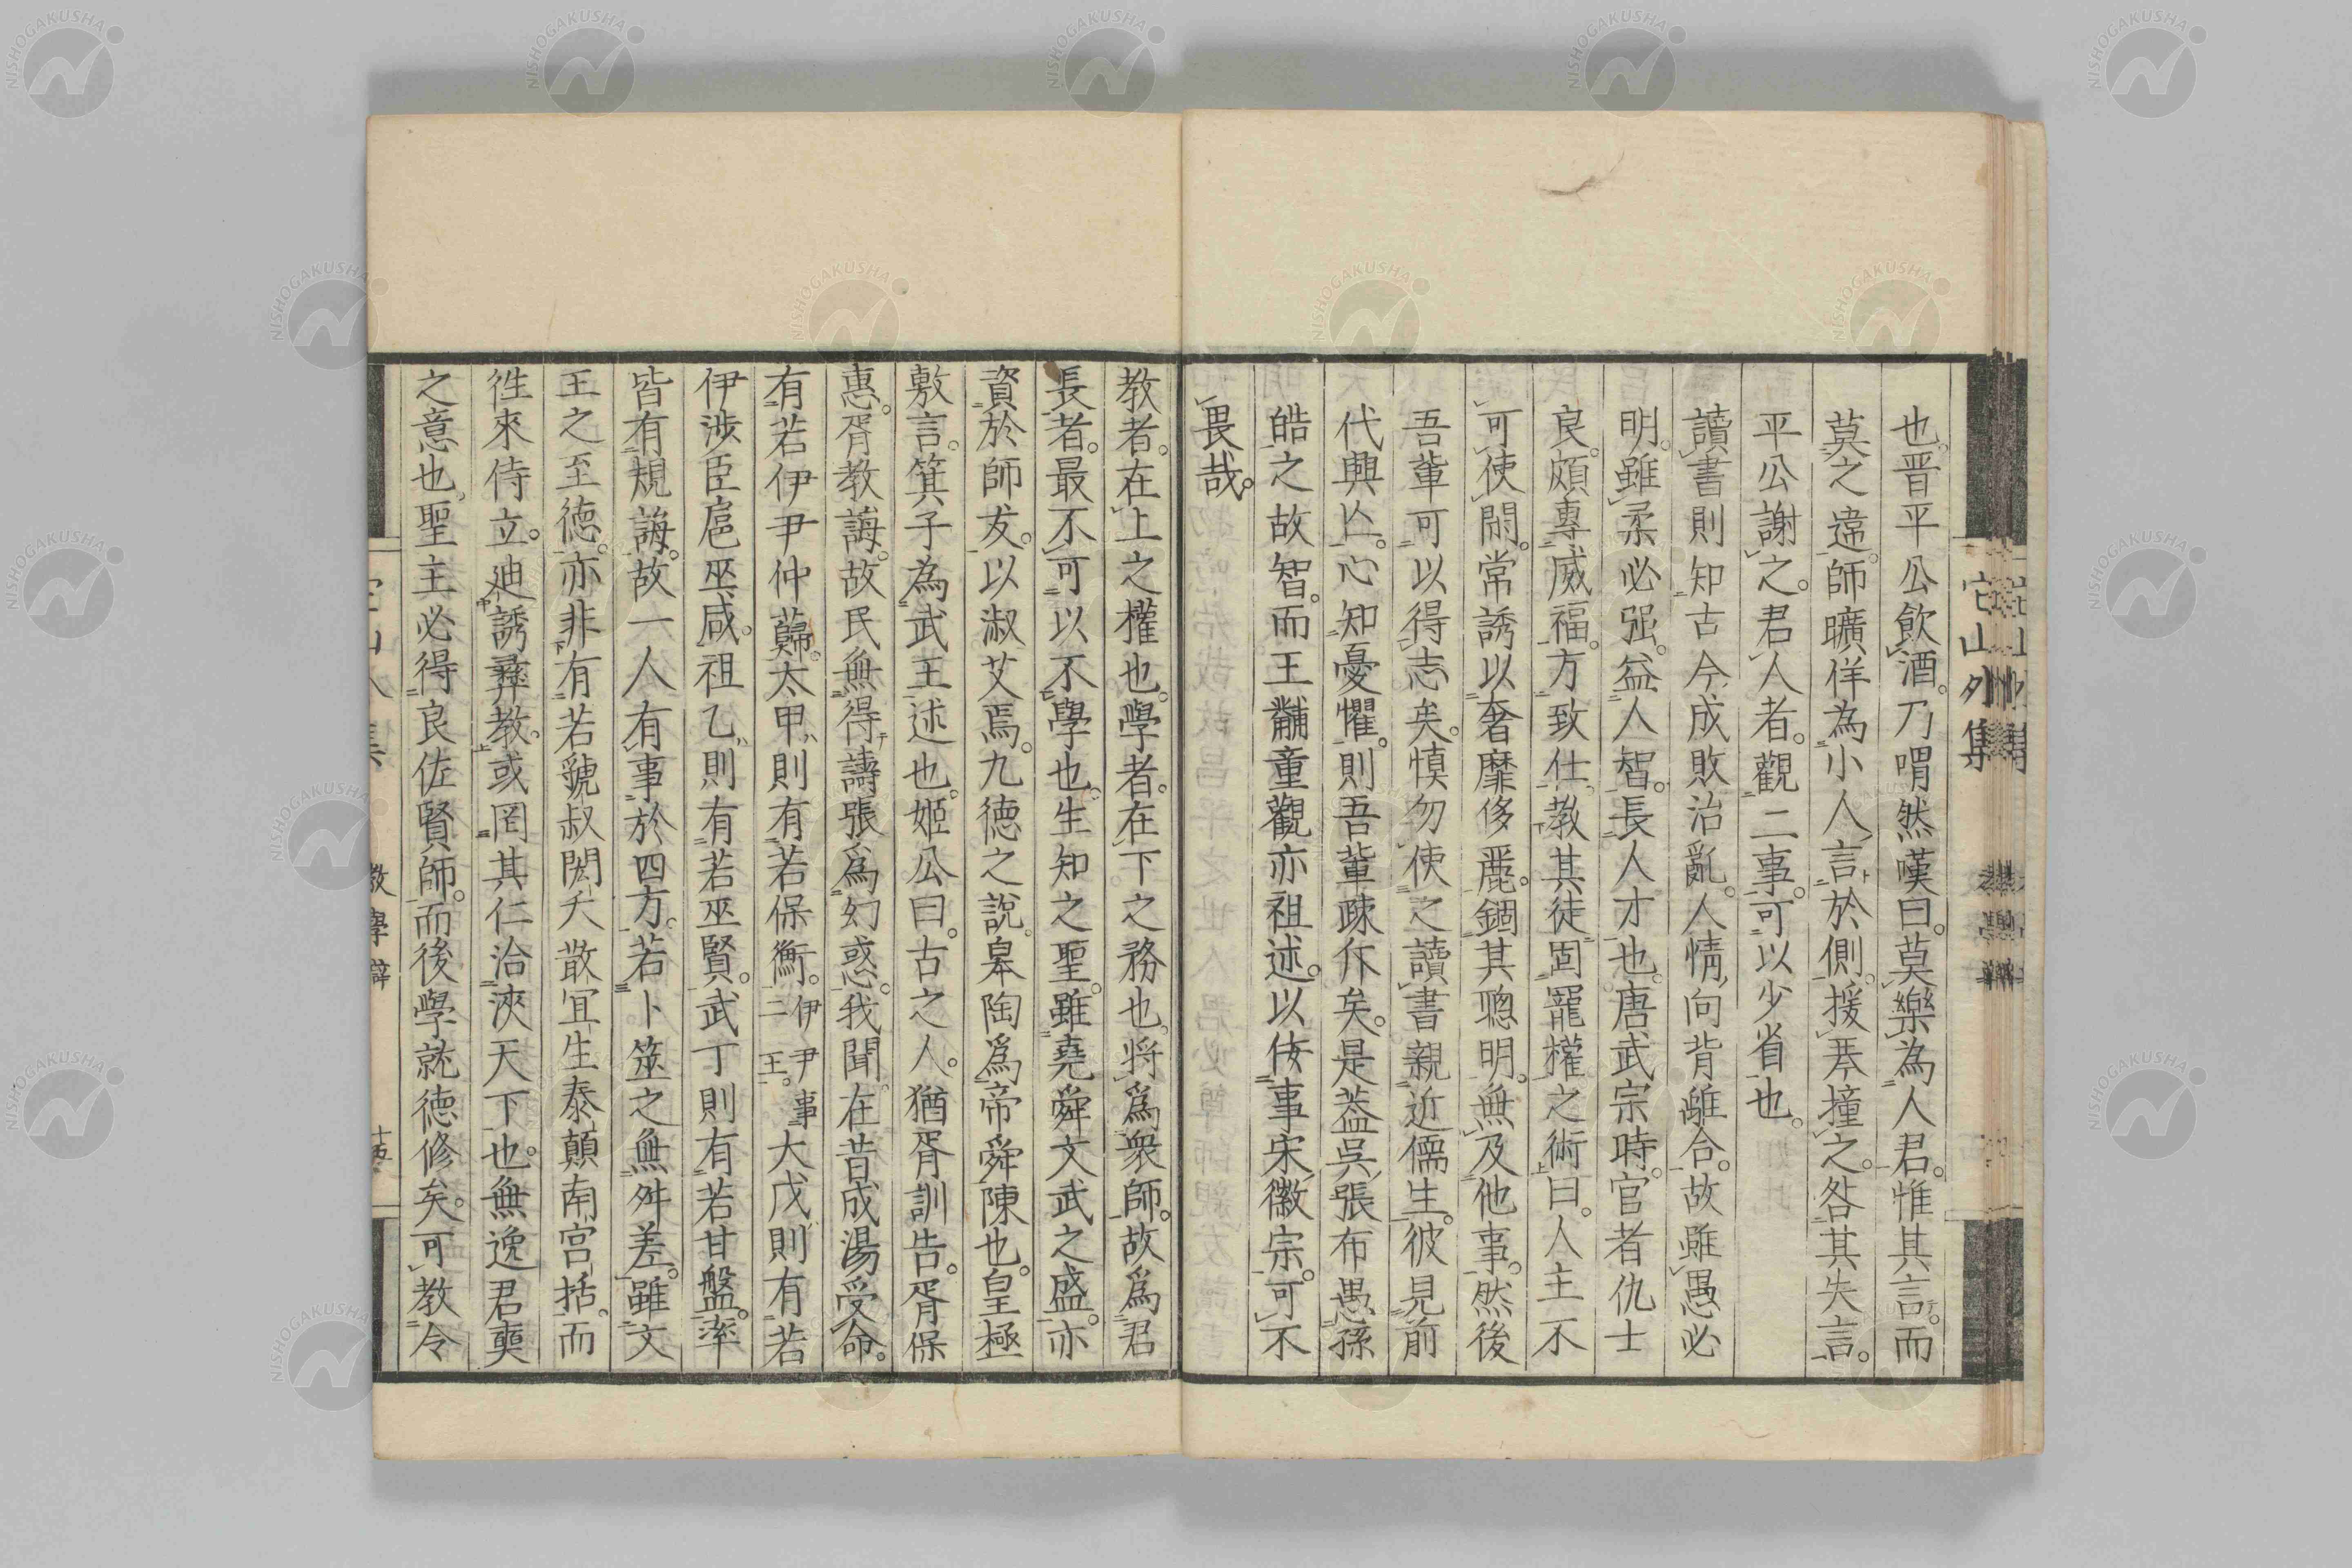 也。晋平公飲酒。乃喟然嘆曰。莫樂為人君。惟其言。而
莫之違。師曠侍為小人言於側。援琴撞之。咎其失言。
平公謝之。君人者。觀二事。可以少省也。
讀書則知古今成敗治亂。人情向背離合。故雖愚必
明。雖柔必强。益人智。長人才也。唐武宗時。官者仇士
良。頗專威福。方致仕。教其徒固寵權之術曰。人主不
可使閑。常誘以奢靡侈麗。錮其聰明。無及他事。然後
吾輩可以得志矣。慎勿使之讀書親近儒生。彼見前
代興亾。心知憂懼。則吾輩疎斥矣。是蓋吳張布愚孫
皓之故智。而王黼童觀亦祖述。以侫事宋徽宗。可不
畏哉。
教者。在上之權也。學者。在下之務也。将爲衆師。故爲君
長者。最不可以不學也。生知之聖。雖堯舜文武之盛。亦
資於師友。以淑艾焉。九德之說。皋陶爲帝舜陳也。皇極
敷言。箕子為武王述也。姬公曰。古之人。猶胥訓告。胥保
惠。胥教誨。故民無得譸張爲幻惑。我聞在昔成湯受命。
有若伊尹仲蘬。太甲則有若保衡。伊尹事二王。大戊則有若
伊涉臣扈巫咸。祖乙則有若巫賢。武丁則有若甘盤。率
皆有規誨。故一人有事於四方。若卜筮之無舛差。雖文
王之至德。亦非有若虢叔閎夭散宜生泰顛南宮括。而
徃來侍立。迪誘彝教。或罔其仁洽浹天下也。無逸君奭
之意也。聖主必得良佐賢師。而後學就徳修矣。可教令
它山外集
教學辯
十五